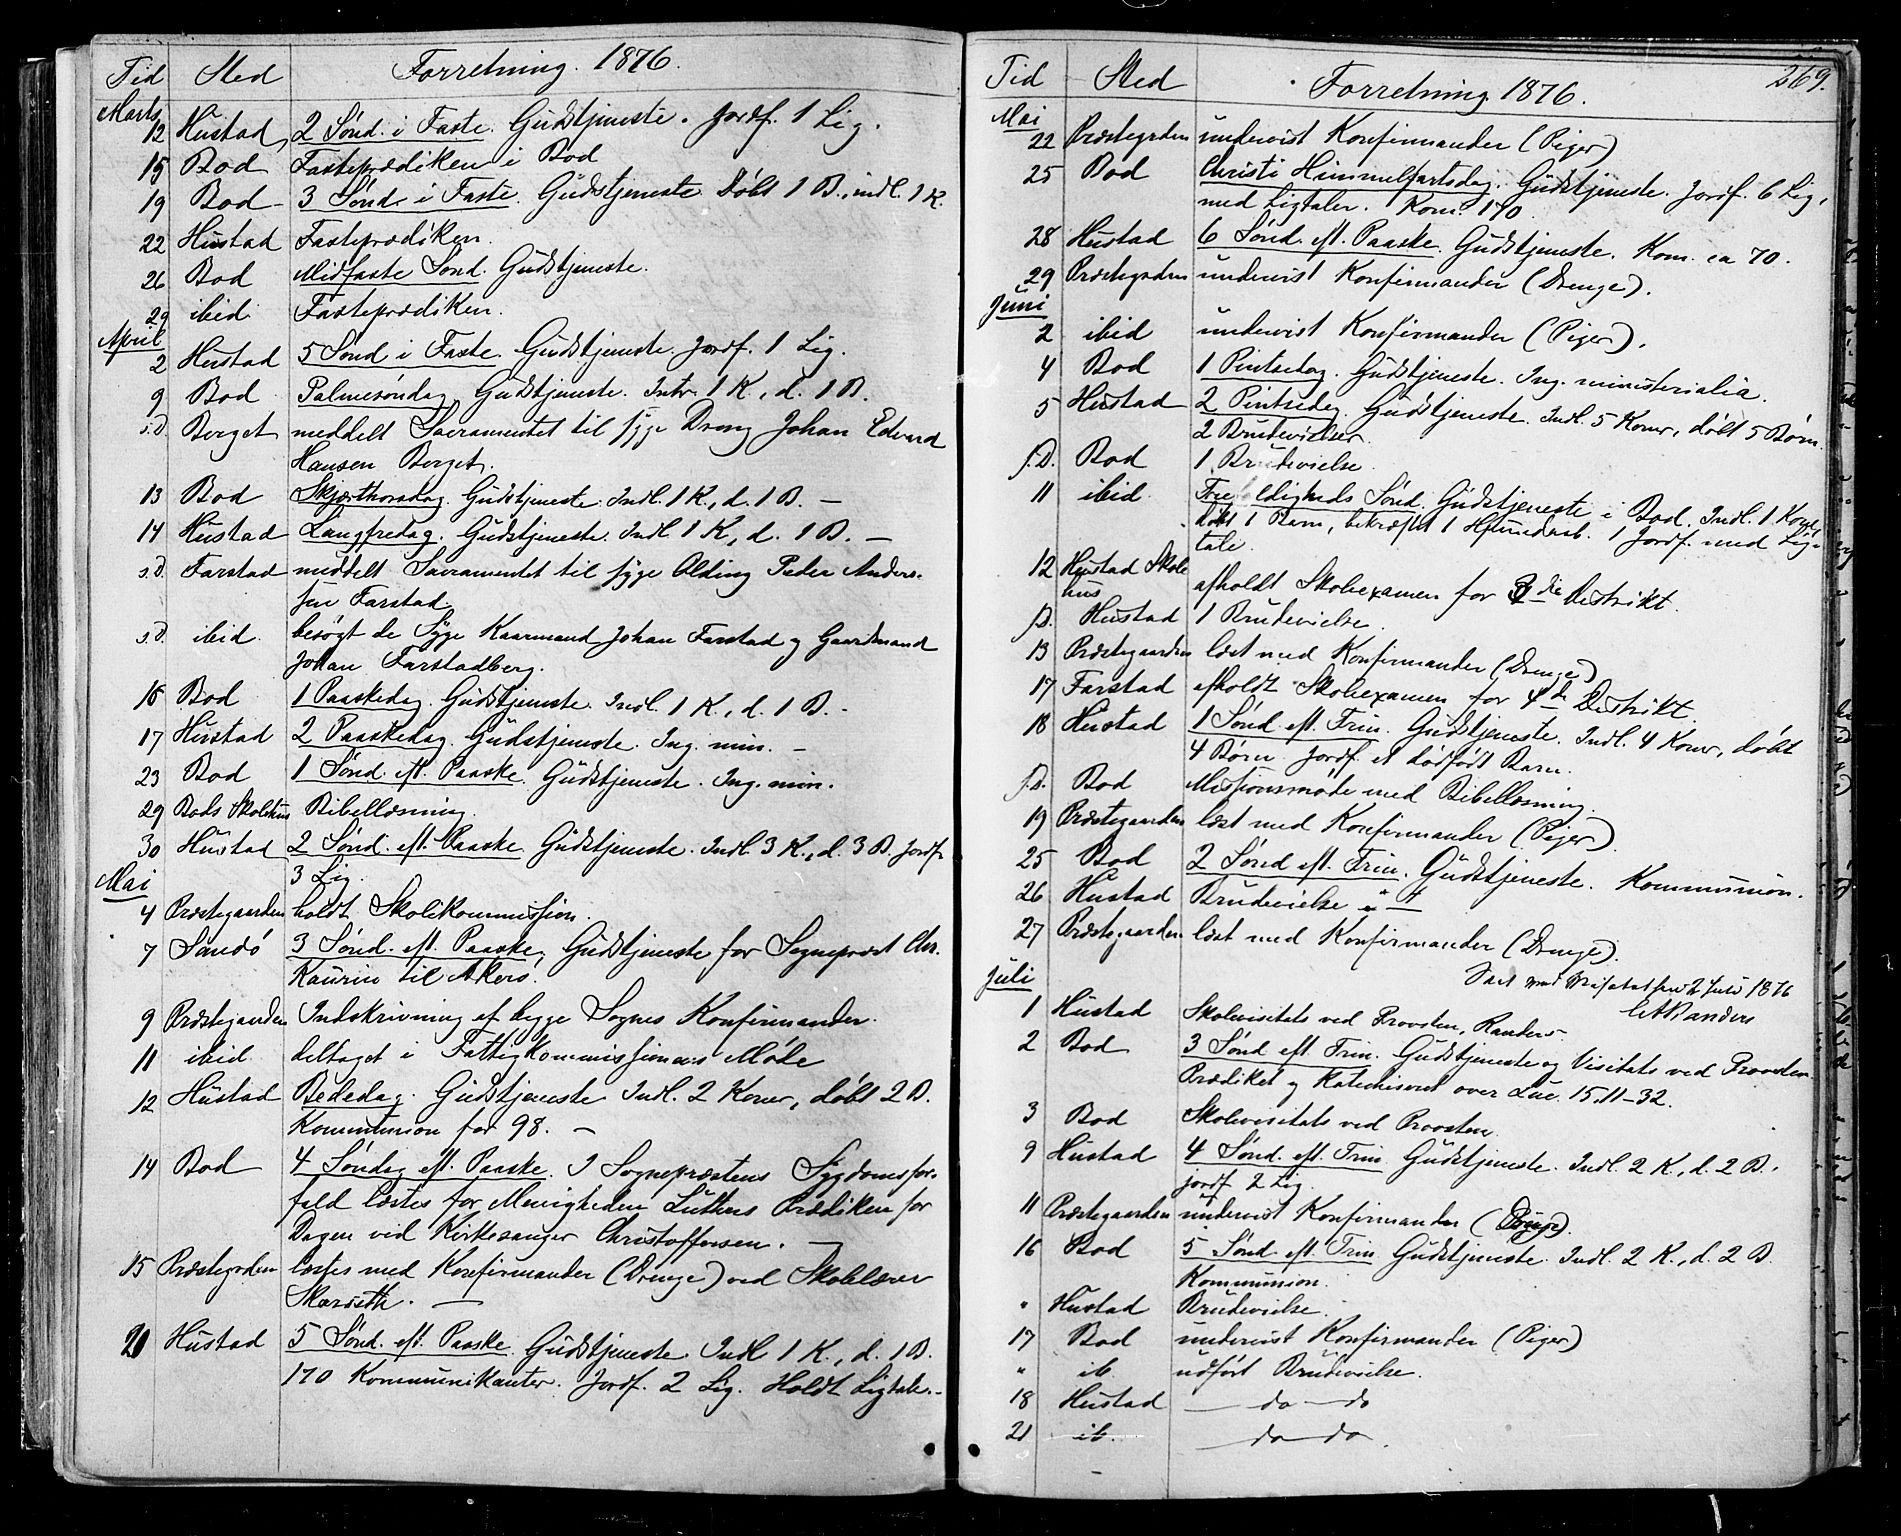 Tid Sted Forretning. 1876.
Marts
12 Hustad, 2 Sönd. i Faste. Gudstjeneste. Jordf. 1 Lig.
15 Bod Fasteprædiken i Bod
19 Bod 3 Sönd. i Faste. Gudstjeneste. Döbt 1 B., indl. 1 K.
22 Hustad Fasteprædiken.
26 Bod Midfaste Sönd. Gudstjeneste.
29 ibid. Fasteprædiken.
April
2 Hustad 5 Sönd i Faste. Gudstjeneste. Jordf. 1 Lig.
9 Bod Palmesöndag. Gudstjeneste. Intr. 1 K., d. 1 B.
s.D. Berget meddelt Sacramentet til syge Dreng Johan Edvard
Hansen Berget.
13 Bod Skjærthorsdag. Gudstjeneste. Indl. 1 K., d. 1 B. —
14 Hustad Langfredag. Gudstjeneste. Indl 1 K, d. 1 B. —
s.D. Farstad meddelt Sacramentet til syge Olding Peder Anders-
sen Farstad.
s.D. ibid. besögt de Syge Kaarmand Johan Farstad og Gaardmand
Johan Farstadberg.
16 Bod 1 Paaskedag. Gudstjeneste. Indl. 1 K., d. 1 B. -
17 Hustad 2 Paaskedag. Gudstjeneste. Ing. min. —
23 Bod 1 Sönd. eft. Paaske. Gudstjeneste. Ing. min.
29 Bods Skolehus Bibellæsning.
30 Hustad 2 Sönd. eft. Paaske. Gudstjeneste. Indl. 3 K., d. 3 B. Jordf.
3 Lig.
Mai
4 Præstegaarden holdt Skolekommission.
7 Sandö 3 Sönd. eft. Paaske, Gudstjeneste for Sogneprest Chr.
Kaurin til Akerö.
9 Præstegaarden Indskrivning af begge Sognes Konfirmander.
11 ibid. deltaget i Fattigkommissionens Möde
12 Hustad Bededag. Gudstjeneste. Indl. 2 Koner, döbt 2 B.
Kommunion for 98. —
14 Bod 4 Söndag eft. Paaske. I Sognepræstens Sygdomsfor-
fald læstes for Menigheden Luthers Prædiken for
Dagen ved Kirkesanger Christoffersen. —
15 Præstegrden læstes med Konfirmander (Drenge) ved Skolelærer
Skarseth. —
21 Hustad 5 Sönd. eft. Paaske. Gudstjeneste. Indl 1 K., d. 1 B.
170 Kommunikanter. Jordf. 2 Lig. Holdt Ligtale. -
269.
Tid Sted Forretning 1876.
Mai
22 Præstegrden undervist Konfirmander (Piger)
25 Bod Christi Himmelfartsdag. Gudstjeneste. Jordf. 6 Lig,
med Ligtaler. Kom. 170
28 Hustad 6 Sönd. eft. Paaske. Gudstjeneste. Kom. ca 70.
29 Præstegrden undervist Konfirmander (Drenge).
Juni
2 ibid undervist Konfirmander (Piger).
4 Bod 1 Pintsedag. Gudstjeneste. Ing. ministerialia.
5 Hustad 2 Pintsedag. Gudstjeneste. Indl. 5 Koner, döbt 5 Börn.
2 Brudevielser.
s.D. Bod 1 Brudevielse.
11 ibid. Trefoldigheds Sönd. Gudstjeneste i Bod. Indl. 1 Kone,
döbt 1 Barn, bekræftet 1 Hjemmedaab. 1 Jordf. med Lig-
tale.
12 Hustad Skole
hus afholdt Skoleexamen for 3die Distrikt.
s.D. Hustad 1 Brudevielse.
13 Præstegaarden læst med Konfirmander (Drenge)
17 Farstad afholdt Skoleexamen for 4de Distrikt.
18 Hustad 1 Sönd. eft. Trin. Gudstjeneste. Indl. 4 Koner, döbt
4 Börn. Jordf. et dödfödt Barn.
s.D. Bod Missionsmöde med Bibellæsning.
19 Præstegaarden læst med Konfirmander (Piger)
25 Bod 2 Sönd eft. Trin. Gudstjeneste. Kommunion.
26 Hustad Brudevielse
27 Præstegaarden læst med Konfirmander (Drenge).
2 Juli 1876
Juli
1 Hustad Skolevisitats ved Provsten, Randers.
2 Bod 3 Sönd eft Trin. Gudstjeneste og Visitats ved Provsten.
Prædiket og katechiseret over Luc. 15.11-32.
3 Bod Skolevisitats ved Provsten.
9 Hustad 4 Sönd. eft. Trin. Gudstjeneste. Indl. 2 K., d. 2 B.,
jordf. 2 Lig.
11 Præstegaarden undervist Konfirmander (Drenge).
16 Bod 5 Sönd. eft. Trin Gudstjeneste. Indl. 2 K., d. 2 B.
Kommunion.
" Hustad Brudevielse.
17 Bod undervist Konfirmander (Piger)
" ib udfört Brudevielse.
18 Hustad — do — do
21 ib. — do — do.